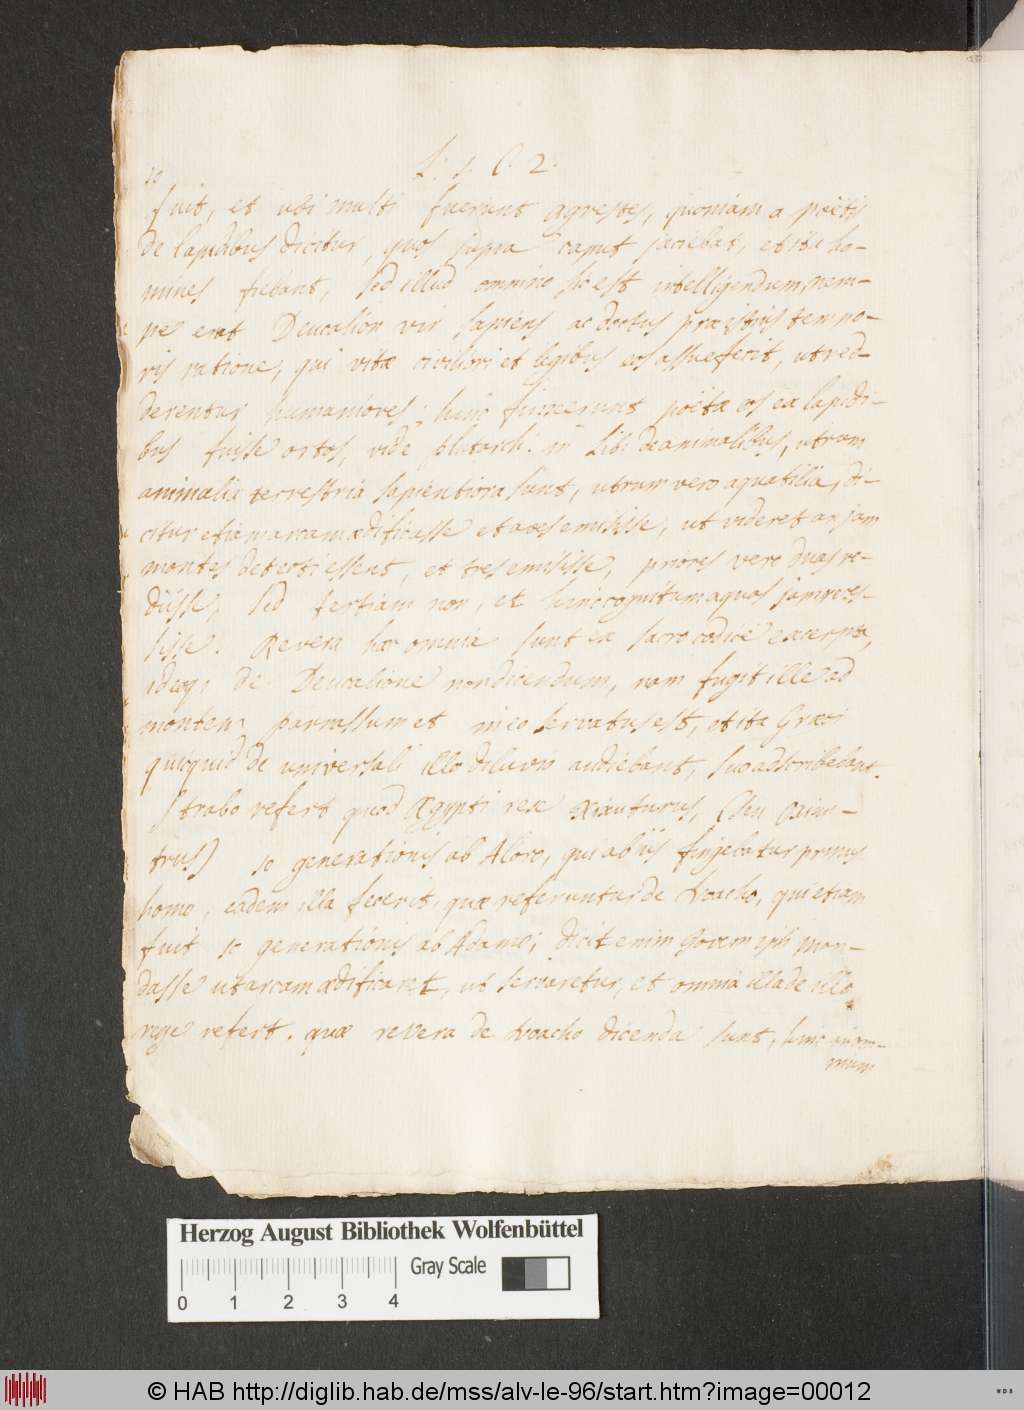 10
L: 1. C. 2.
fuit, et ubi multi fuerunt agrestes, quoniam a poëtis
de lapidibus dicitur, quos supra caput jaciebat, et ita ho-
mines fiebant, sed illud omnino sic est intelligendum, nem-
pe erat Deucalion vir sapiens ac doctus pro istius tempo-
ris ratione, qui vitæ civiliori et legibus eos assuefecit, ut red-
derentur humaniores; hinc finxerunt poëtæ eos ex lapidi-
bus fuisse ortos, vide plutarch: in Lib: de animalibus, utrum
animalia terrestria sapientiora sunt, utrum vero aquatilia, di-
citur etiam arcam ædificasse et aves emisisse, ut videret an jam
montes detecti essent, et tres emisisse, priores vero duas re-
diisse, sed tertiam non, et hinc cognitum aquas jam reces-
sisse. Revera hæc omnia sunt ex sacro codice excerpta,
ideoq; de Deucalione non dicendum, nam fugit ille ad
montem parnassum et in eo servatus est, et ita Græci
quicquid de universali illo diluvio audiebant, suo adscribebant.
Strabo refert quod Ægypti rex (seu
trus) 10 generationis ab Aloro, qui ab iis fingebatur primus
homo, eadem illa fecerit, quæ referuntur de Noacho, qui etiam
fuit 10 generationis ab Adamo; dicit enim Jovem ipsi man-
dasse ut arcam ædificaret, ut servaretur, et omnia illa de illo
rege refert. quæ revera de Noacho dicenda sunt, hinc
nium
Herzog August Bibliothek Wolfenbüttel
Gray Scale
0 1 2 3 4
© HAB http://diglib.hab.de/mss/alv-le-96/start.htm?image=00012